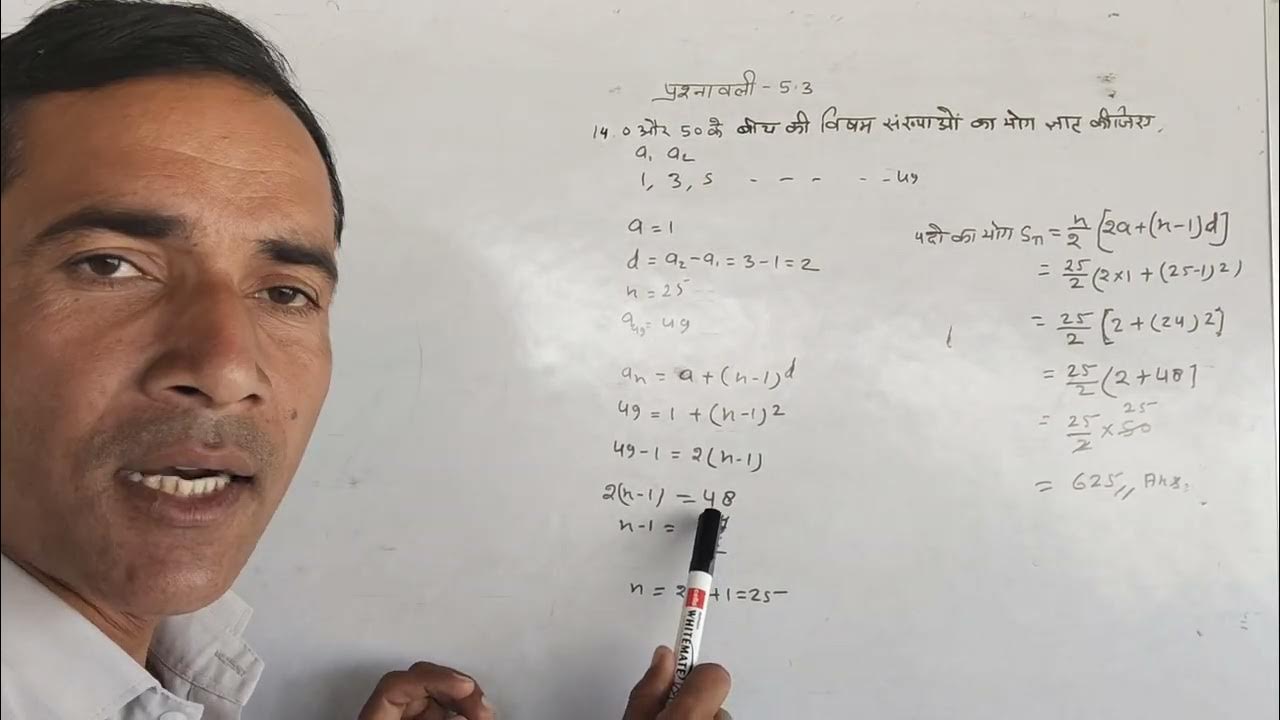 प्रश्नावली - 5.3
14. 0 और 50 के बीच की विषम संख्याओं का योग ज्ञात कीजिए.
a₁ a₂
1, 3, 5 - - - - - - 49
a = 1
d = a₂ - a₁ = 3 - 1 = 2
n = 25
a₄₉ = 49
aₙ = a + (n-1) d
49 = 1 + (n-1) 2
49 - 1 = 2 (n-1)
2(n-1) = 48
n-1 =
n = 2 +1 = 25
पदो का योग Sₙ = n/2 [2a + (n-1) d]
= 25/2 (2×1 + (25-1) 2)
= 25/2 [2 + (24) 2]
= 25/2 (2 + 48]
= 25/2 × 50 25
= 625,, Ans.
WHITEMATE